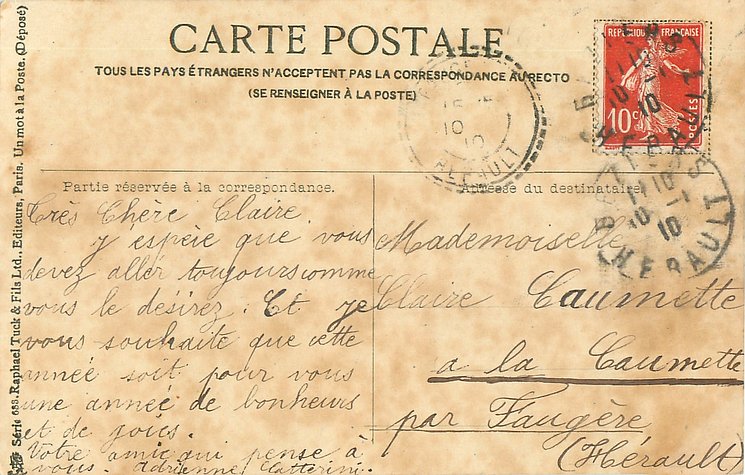 CARTE POSTALE
TOUS LES PAYS ÉTRANGERS N'ACCEPTENT PAS LA CORRESPONDANCE AU RECTO
(SE RENSEIGNER À LA POSTE)
RÉPUBLIQUE FRANÇAISE
10c
POSTES
10
10
HÉRAULT
HERAULT
10
10
HERAULT
Série 683. Raphael Tuck & Fils Ltd., Editeurs, Paris. Un mot à la Poste. (Déposé)
Partie réservée à la correspondance.
Très Chère Claire.
J'espéie que vous
devez aller toujours comme
vous le desirez. Et je
vous souhaite que cette
année soit pour vous
une année de bonheurs
et de joies.
Votre amie qui pense à
vous. Adrienne
Adresse du destinataire.
Mademoiselle
Claire Caumette
a la Caumette
par Faugère
(Hérault)